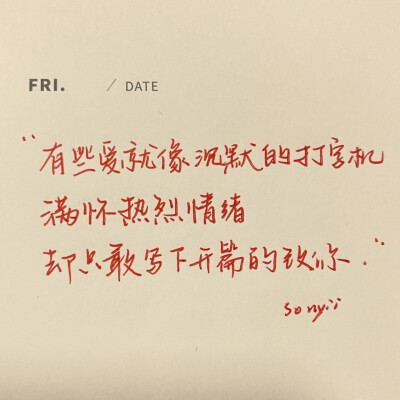 FRI. / DATE
“有些爱就像沉默的打字机
满怀热烈情绪
却只敢写下开篇的致你.”
sonyii